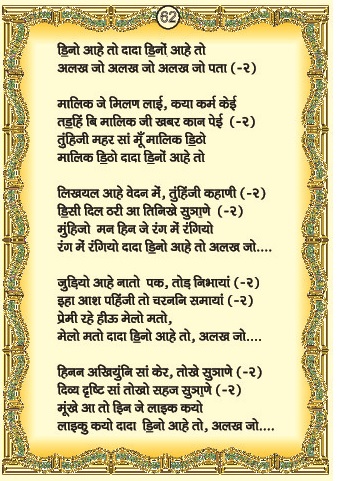 62
ॾिनो आहे तो दादा ॾिनों आहे तो
अलख जो अलख जो अलख जो पता (-२)
मालिक जे मिलण लाई, कया कर्म केई
तॾहिं बि मालिक जी खबर कान पेई (-२)
तुंहिजी महर सां मूँ मालिक ॾिठो
मालिक ॾिठो दादा ॾिनों आहे तो
लिखयल आहे वेदन में, तुंहिंजी कहाणी (-२)
ॾिसी दिल ठरी आ तिनिखे सुञाणे (-२)
मुंहिजो मन हिन जे रंग में रंगियो
रंग में रंगियो दादा ॾिनो आहे तो अलख जो....
जुड़ियो आहे नातो पक, तोड़ निभायां (-२)
इहा आश पहिंजी तो चरननि समायां (-२)
प्रेमी रहे हीऊ मेलो मतो,
मेलो मतो दादा ॾिनो आहे तो, अलख जो....
हिनन अखियुंनि सां केर, तोखे सुञाणे (-२)
दिव्य दृष्टि सां तोखो सहज सुञाणे (-२)
मूंखे आ तो ॾिन जे लाइक कयो
लाइकु कयो दादा ॾिनो आहे तो, अलख जो....